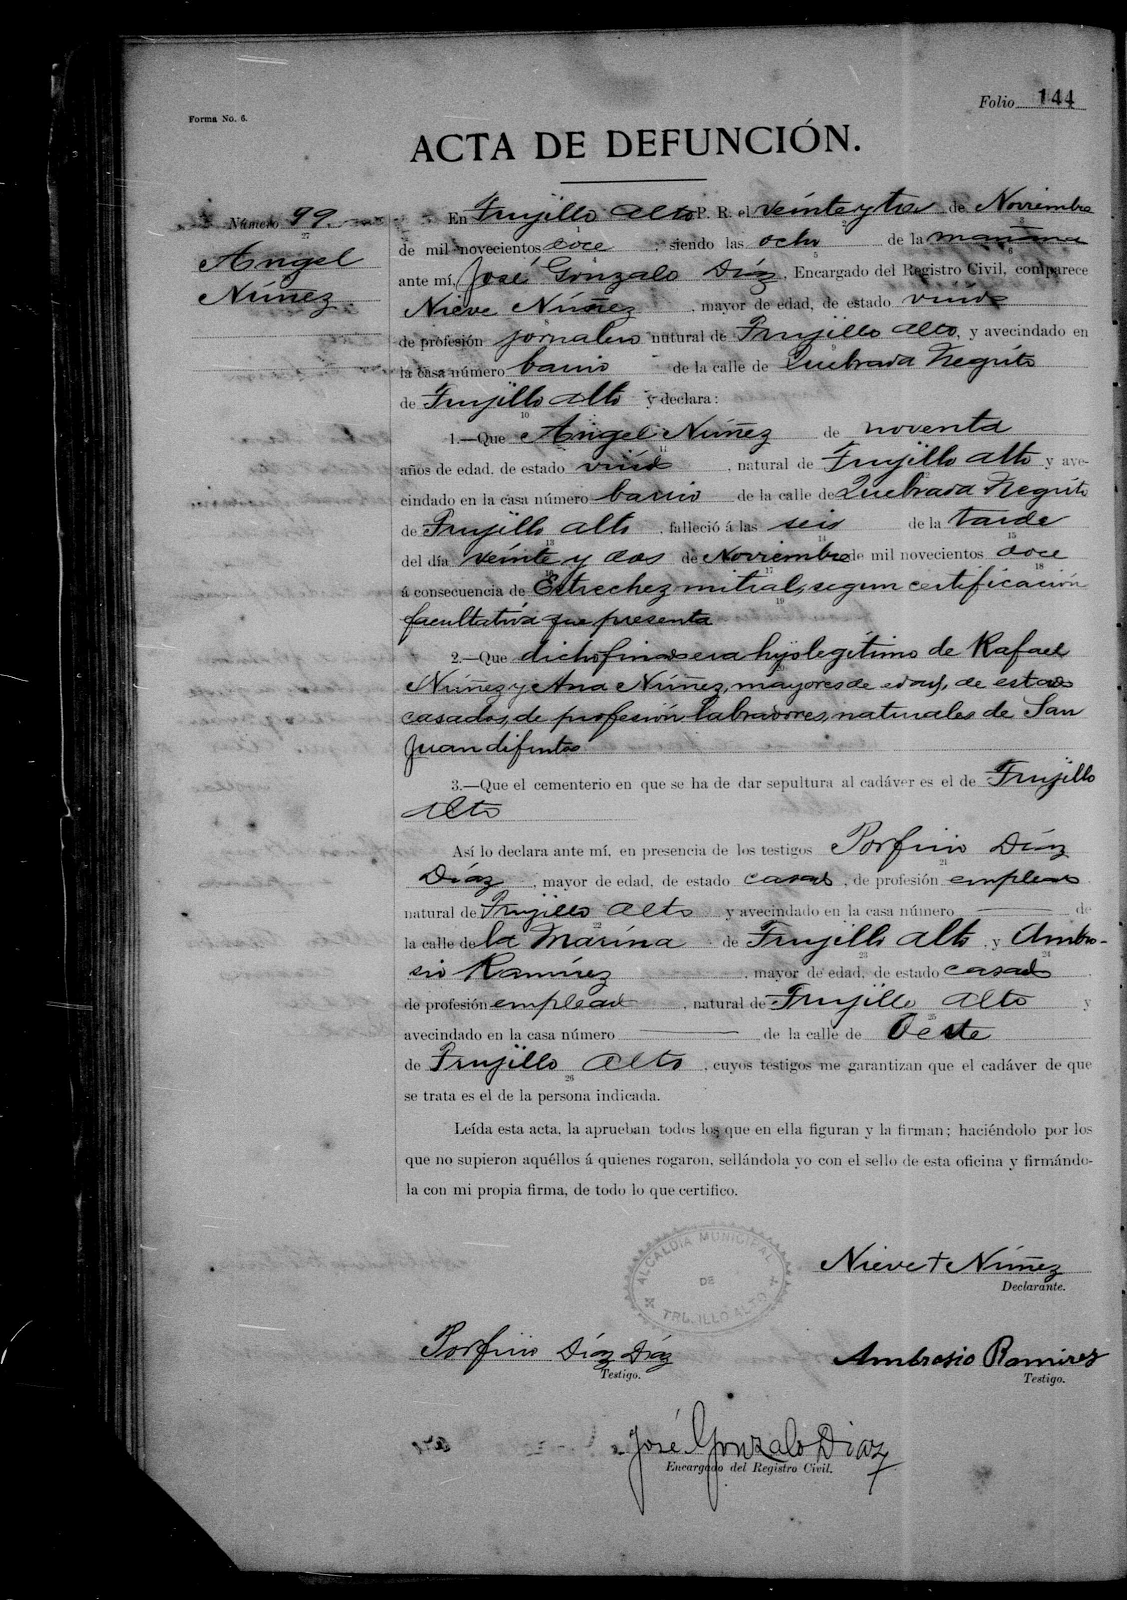 Forma No. 6.
Folio 144
ACTA DE DEFUNCIÓN.
Número 99.
27
Angel
Núñez
En Trujillo Alto P. R. el veinte y tres de Noviembre
de mil novecientos doce siendo las ocho de la mañana
ante mí, José Gonzalo Díaz, Encargado del Registro Civil, comparece
Nieve Núñez, mayor de edad, de estado viudo
de profesión jornalero natural de Trujillo Alto, y avecindado en
la casa número barrio de la calle de Quebrada Negrito
de Trujillo Alto y declara:
1.—Que Angel Núñez de noventa
años de edad, de estado viudo, natural de Trujillo Alto y ave-
cindado en la casa número barrio de la calle de Quebrada Negrito
de Trujillo Alto, falleció á las seis de la tarde
del día veinte y dos de Noviembre de mil novecientos doce
á consecuencia de Estrechez mitral, segun certificación
facultativa que presenta
2.—Que dicho finado era hijo legítimo de Rafael
Núñez y Ana Núñez, mayores de edad, de estado
casados, de profesión labradores, naturales de San
Juan difuntos
3.—Que el cementerio en que se ha de dar sepultura al cadáver es el de Trujillo
Alto
Así lo declara ante mí, en presencia de los testigos Porfirio Díaz
Díaz, mayor de edad, de estado casado, de profesión empleado
natural de Trujillo Alto y avecindado en la casa número de
la calle de la Marina de Trujillo Alto, y Ambro-
sio Ramírez, mayor de edad, de estado casado
de profesión empleado, natural de Trujillo Alto y
avecindado en la casa número de la calle de Oeste
de Trujillo Alto, cuyos testigos me garantizan que el cadáver de que
se trata es el de la persona indicada.
Leída esta acta, la aprueban todos los que en ella figuran y la firman; haciéndolo por los
que no supieron aquéllos á quienes rogaron, sellándola yo con el sello de esta oficina y firmándo-
la con mi propia firma, de todo lo que certifico.
ALCALDIA MUNICIPAL
DE
TRUJILLO ALTO
Nieve + Núñez
Declarante.
Porfirio Díaz Díaz
Testigo.
Ambrosio Ramirez
Testigo.
José Gonzalo Diaz
Encargado del Registro Civil.